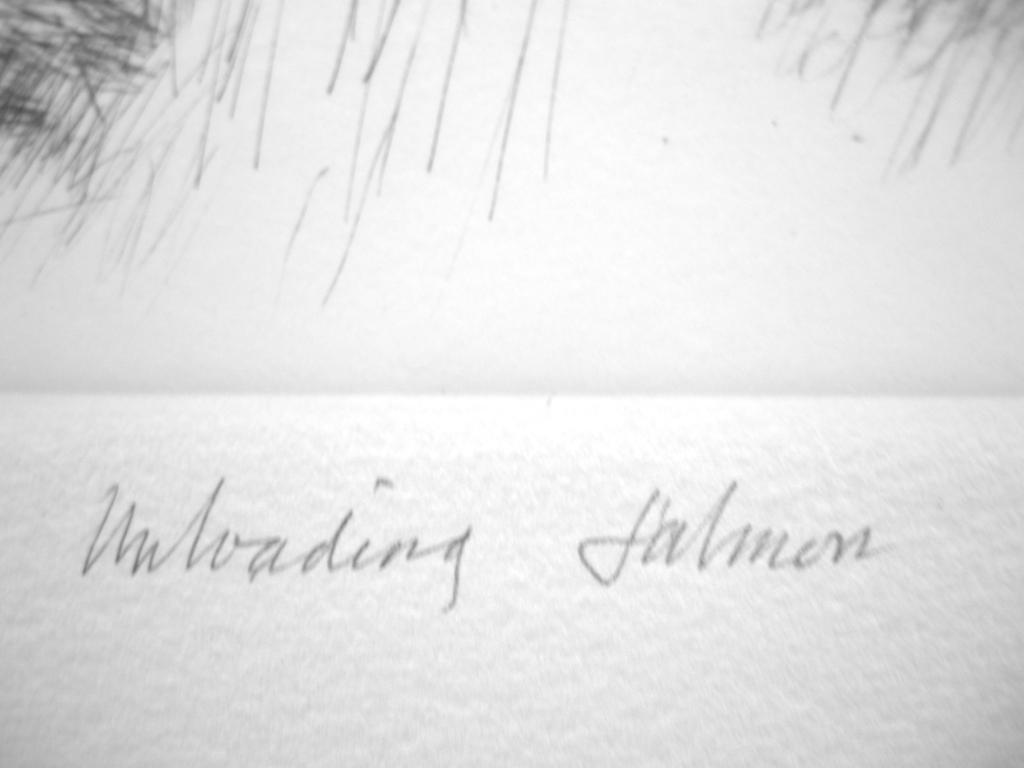 Unloading Salmon